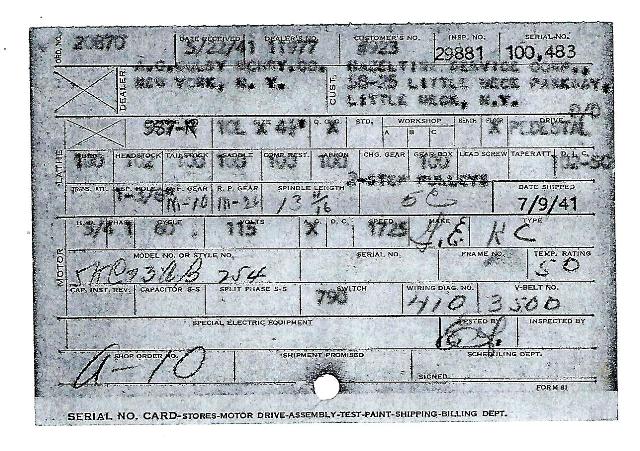 ORD. NO. 20870 DATE RECEIVED 5/22/41 DEALER'S NO. 11977 CUSTOMER'S NO. 8923 INSP. NO. 29881 SERIAL-NO. 100,483
DEALER: NEW YORK, N. Y.
CUST. HAZELTINE SERVICE CORP.,
LITTLE NECK PARKWAY,
LITTLE NECK, N.Y.
LATHE 987-R 10L X STD. WORKSHOP A B C BENCH FLOOR X DRIVE PEDESTAL
HEADSTOCK TAILSTOCK SADDLE COMP. REST. APRON CHG. GEAR GEAR BOX LEAD SCREW TAPER ATT.
100 102 100 100 100 100 100
2-STEP PULLEYS
SP. HOLE F. GEAR R. P. GEAR SPINDLE LENGTH DATE SHIPPED
M-10 13 11/16 5C 7/9/41
MOTOR H. P. PHASE CYCLE VOLTS D. C. SPEED MAKE TYPE
3/4 1 60 115 X 1725 G.E. KC
MODEL NO. OR STYLE NO. SERIAL NO. FRAME NO. TEMP. RATING
254 50
CAP. INST. REV. CAPACITOR S-S SPLIT PHASE S-S SWITCH WIRING DIAG. NO. V-BELT NO.
790 410 3500
SPECIAL ELECTRIC EQUIPMENT TESTED BY INSPECTED BY
SHOP ORDER NO. SHIPMENT PROMISED SCHEDULING DEPT.
A-10
SIGNED
FORM 81
SERIAL NO. CARD-STORES-MOTOR DRIVE-ASSEMBLY-TEST-PAINT-SHIPPING-BILLING DEPT.